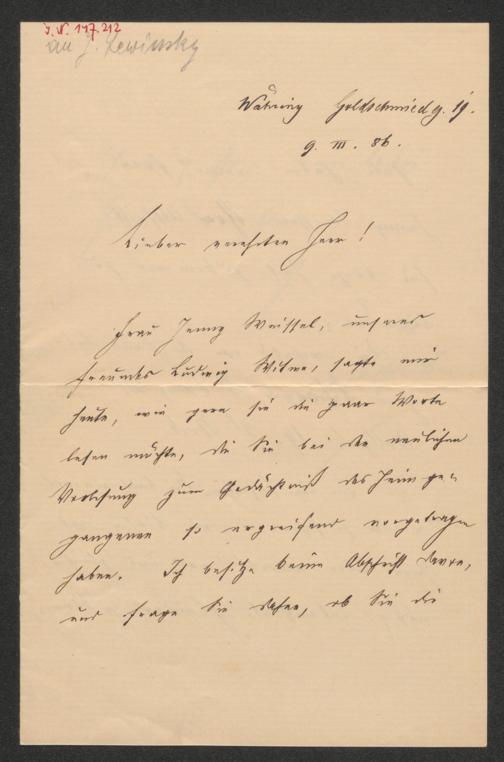 I.N. 147.212
an J. Lewinsky
Währing Goldschmiedg. 19.
9. III. 86.
Lieber verehrter Herr!
Frau Jenny Weissel, unseres
Freundes Ludwig Witwe, sagte mir
heute, wie gern sie die paar Worte
lesen möchte, die Sie bei der neulichen
Vorlesung zum Gedächtniß des Heimge-
gangenen so ergreifend vorgetragen
haben. Ich besitze keine Abschrift davon,
und frage Sie daher, ob Sie die